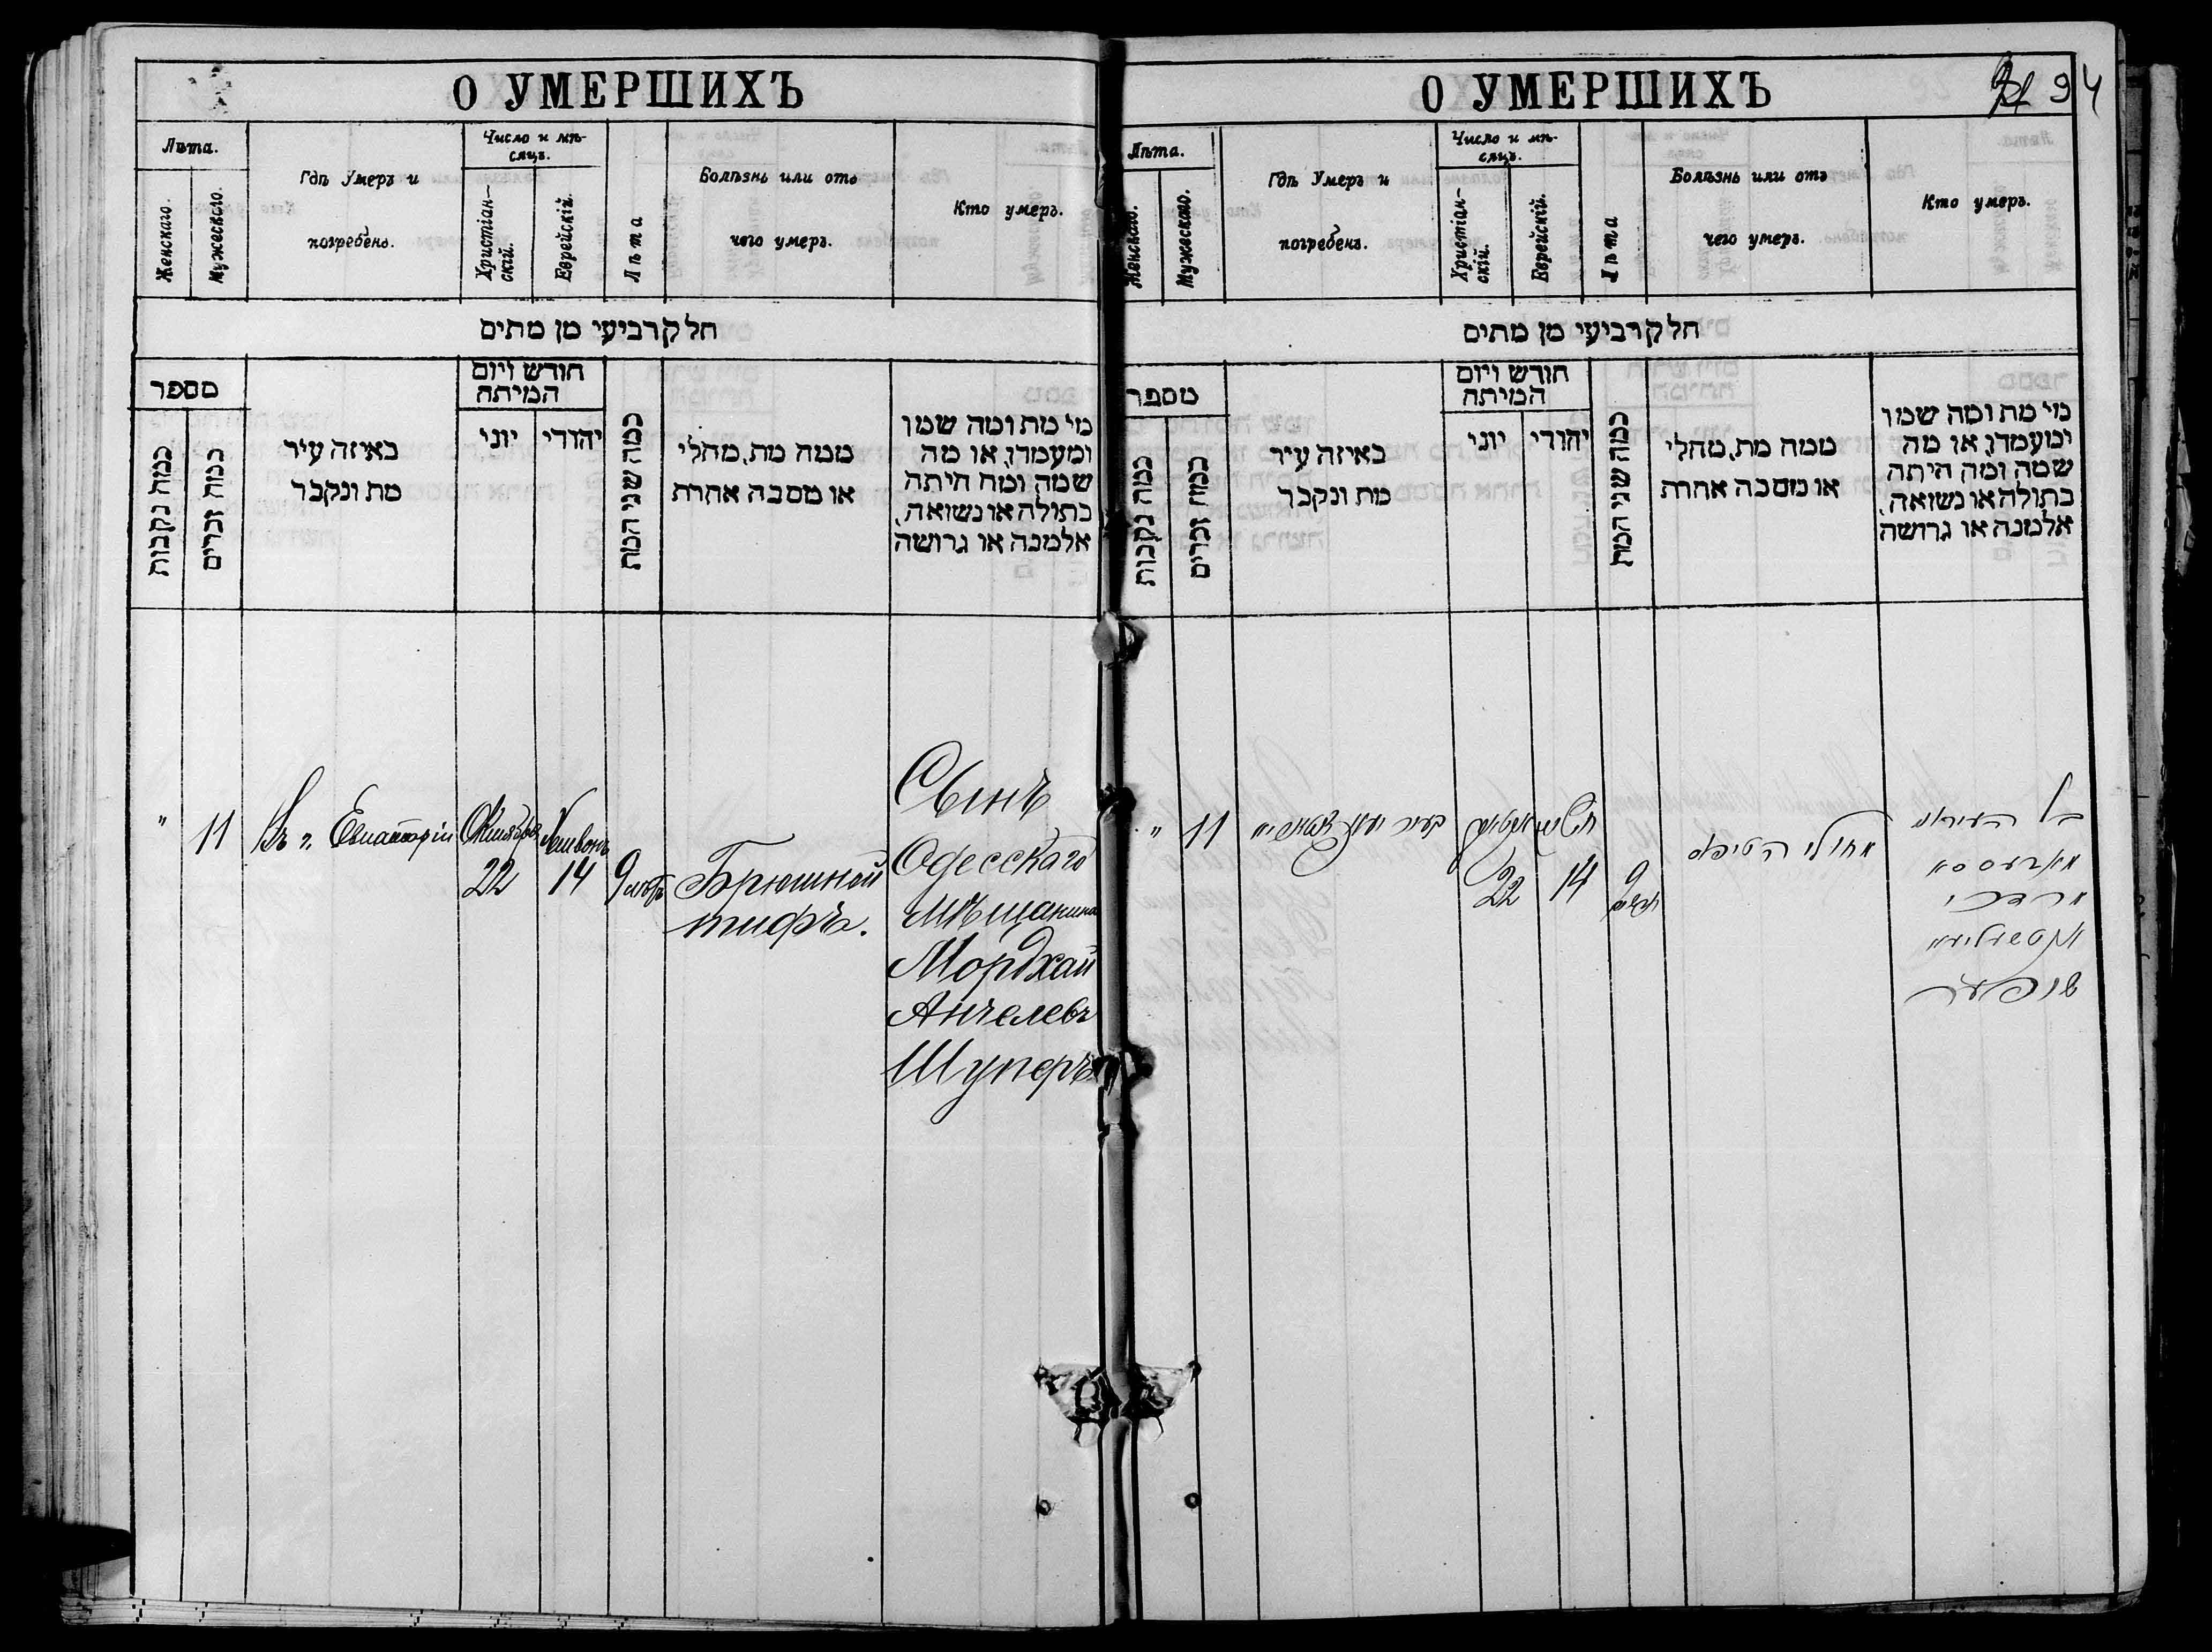 О УМЕРШИХЪ
Лѣта.
Женскаго.
Мужескаго.
Гдѣ Умеръ и
погребенъ.
Число и мѣ-
сяцъ.
Христіан-
скій.
Еврейскій.
Лѣта
Болѣзнь или отъ
чего умеръ.
Кто умеръ.
חלק רביעי מן מתים
מספר
כמה נקבות
כמה זכרים
באיזה עיר
מת ונקבר
חודש ויום
המיתה
יוני
יהודי
כמה שני המת
ממה מת, מחלי
או מסבה אחרת
מי מת ומה שמו
ומעמדו, או מה
שמה ומה היתה
בתולה או נשואה,
אלמנה או גרושה
"
11
Въ г. Евпаторіи
Октября
22
Хешвонъ
14
9 мѣс
Брюшной
тифъ.
Сынъ
Одесскаго
Мѣщанина
Мордхай
Анчелевъ
Шуперъ
О УМЕРШИХЪ
94
Лѣта.
Женскаго.
Мужескаго.
Гдѣ Умеръ и
погребенъ.
Число и мѣ-
сяцъ.
Христіан-
скій.
Еврейскій.
Лѣта
Болѣзнь или отъ
чего умеръ.
Кто умеръ.
חלק רביעי מן מתים
מספר
כמה נקבות
כמה זכרים
באיזה עיר
מת ונקבר
חודש ויום
המיתה
יוני
יהודי
כמה שני המת
ממה מת, מחלי
או מסבה אחרת
מי מת ומה שמו
ומעמדו, או מה
שמה ומה היתה
בתולה או נשואה,
אלמנה או גרושה
"
11
בעיר
22
14
9
מחולי הטיפוס
בן העירוני
מאדעססא
מרדכי
שופער